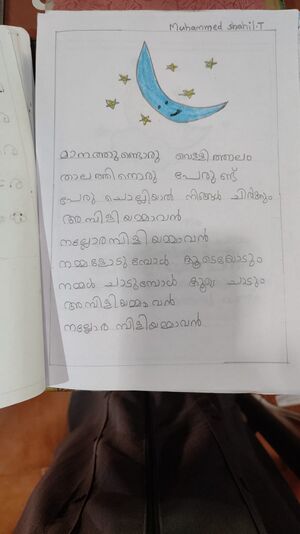 Muhammed Shahil.T
മാനത്തുണ്ടൊരു വെള്ളിത്താലം
താലത്തിന്നൊരു പേരുണ്ട്
പേരു ചൊല്ലിയാൽ നിങ്ങൾ ചിരിക്കും
അമ്പിളിയമ്മാവൻ
നല്ലോരമ്പിളിയമ്മാവൻ
നമ്മളോടുമ്പോൾ കൂടെയോടും
നമ്മൾ ചാടുമ്പോൾ കൂടെ ചാടും
അമ്പിളിയമ്മാവൻ
നല്ലോരമ്പിളിയമ്മാവൻ